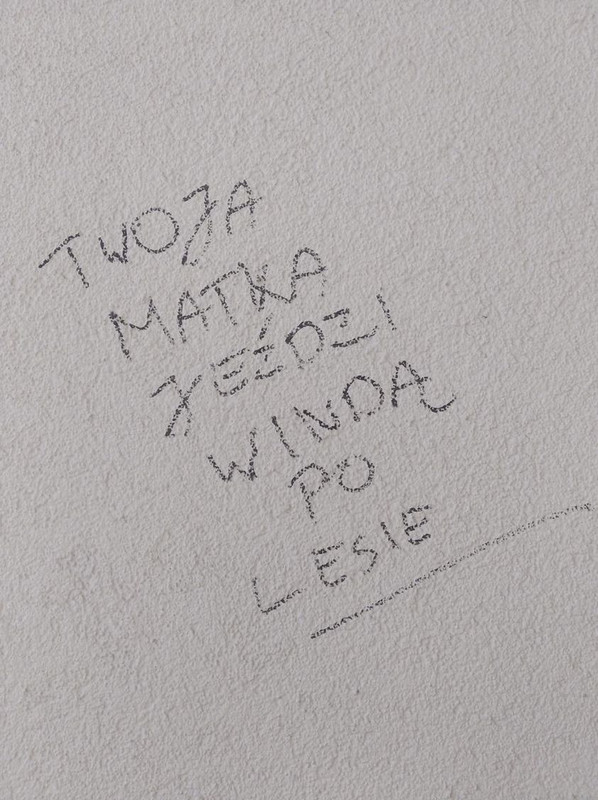 TWOJA
MATKA
JEŹDZI
WINDĄ
PO
LESIE